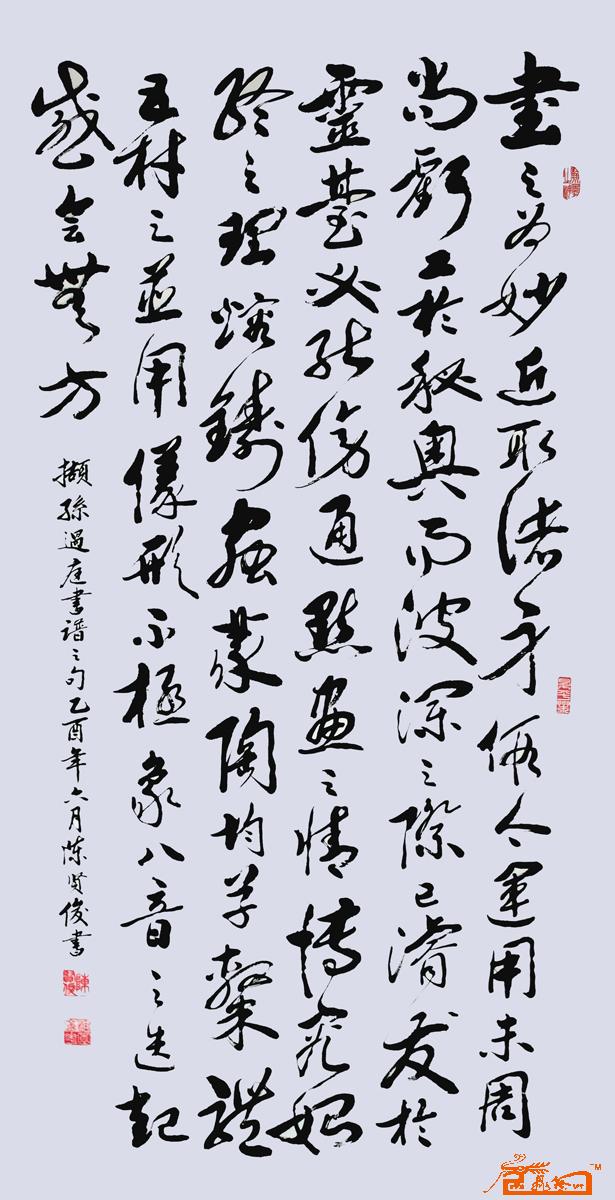 書之為妙近取諸身假令運用未周
尚虧工於秘奧而波瀾之際已濬發於
靈臺必能傍通點畫之情博究始
終之理熔鑄蟲篆陶均草隸體
五材之並用儀形不極象八音之迭起
感會無方
擷孫過庭書譜之句乙酉年六月陳賢俊書